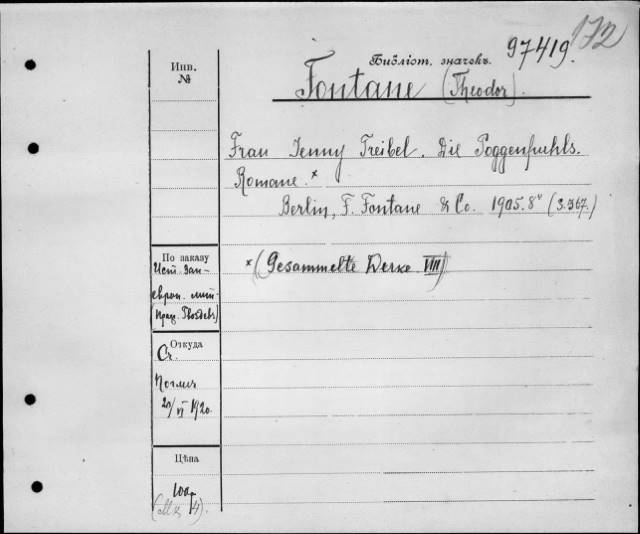 172
97419.
Библіот. значекъ
Инв.
№
Fontane (Theodor).
Frau Jenny Treibel. Die Poggenpuhls.
Romane. *
Berlin, F. Fontane & Co. 1905. 8° (3.)
* (Gesammelte Werke. VIII)
По заказу
Ист. зап-
европ. лит
Откуда
Ст.
20/VI 1920.
Цѣна
100р